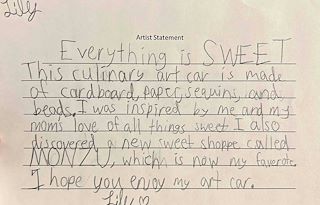 Lilly
Artist Statement
Everything is SWEET
This culinary art car is made
of cardboard, paper, sequins, and
beads. I was inspired by me and my
moms love of all things sweet. I also
discovered a new sweet shoppe called
which is now my favorote.
I hope you enjoy my art car.
Lilly